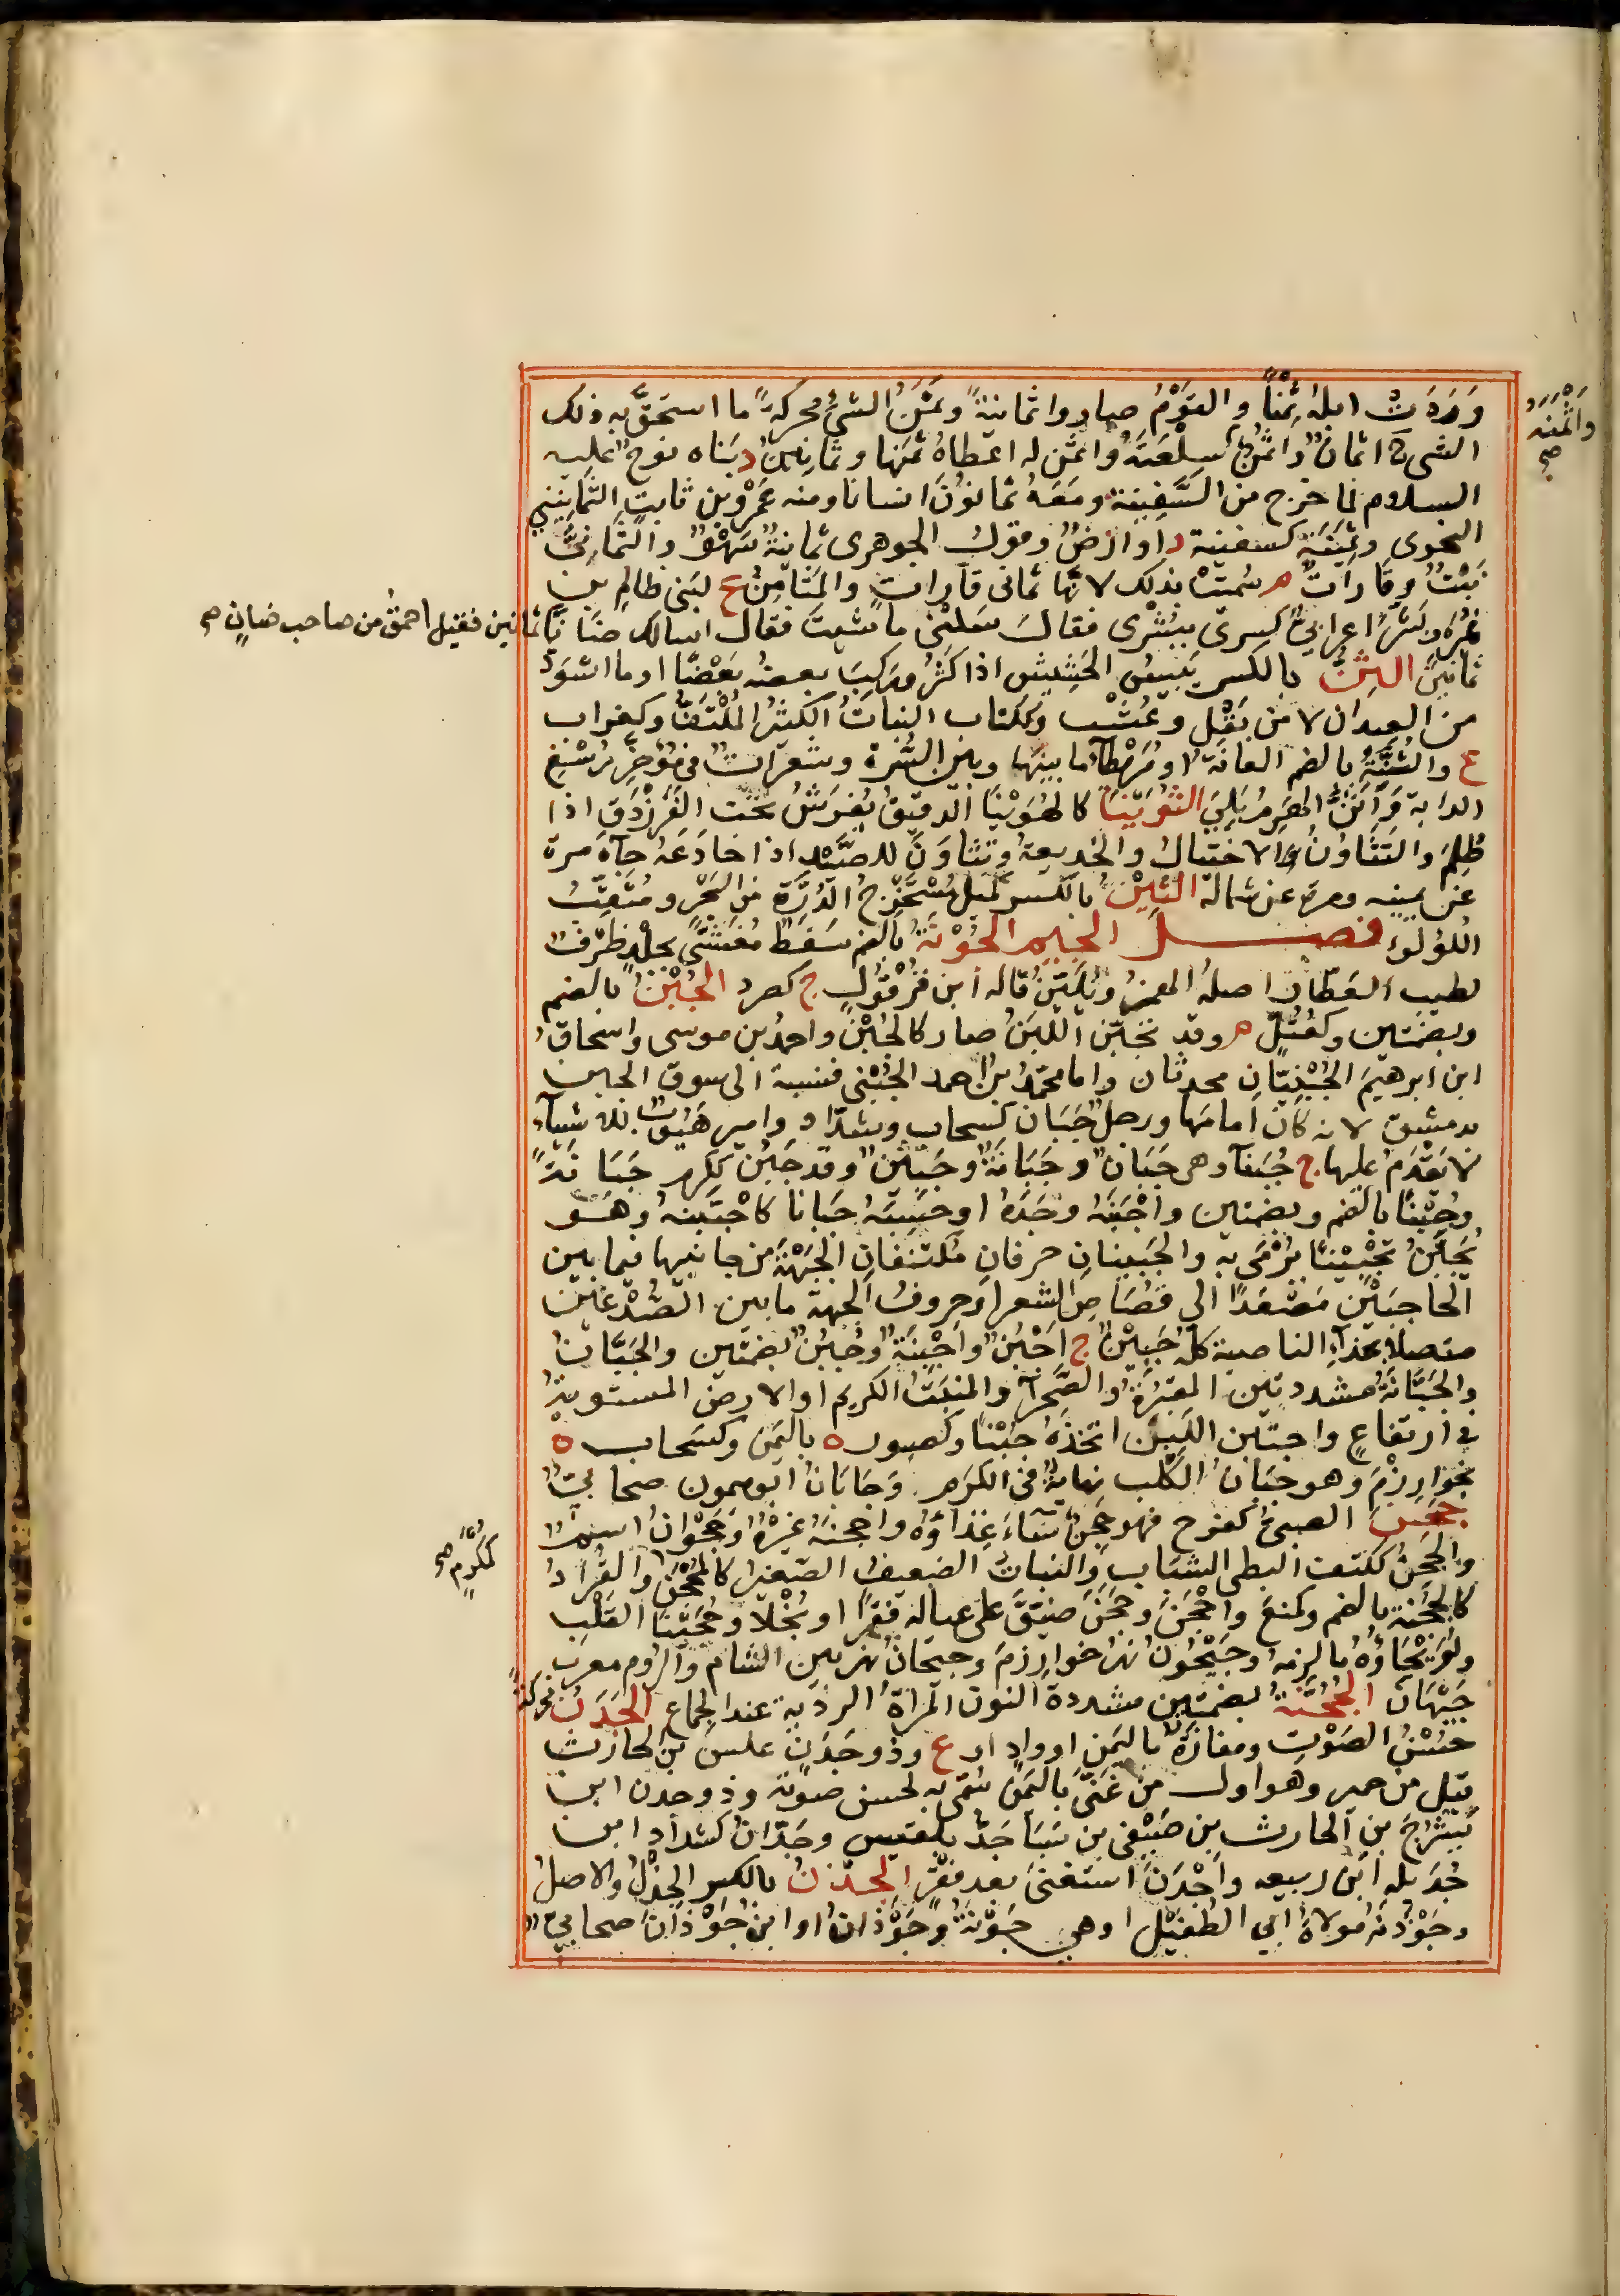 وَرَدَت ابلهُ ثِمْناً والقَوْمُ صاروا ثمانيةً وثَمَنُ الشئِ محركةً ما استحَقَّ به ذلك
الشئ ج اثمانٌ واثمُنٌ واثمنَهُ سِلْعَتَهُ واثمن له اعطاهُ ثمنَها وثمانِينُ د بَناه نوحٌ عليه
السلام لما خرج من السَّفِينة ومَعَهُ ثمانُونَ انسانا ومنه عَمْرُو بن ثابتٍ الثمانينيُّ
النحوى وثَمِينَةُ كسفينة د او ارضٌ وقول الجوهرى ثمانيةُ سَهْوٌ والثَّمَانِىُّ
نَبْتٌ وقاراتٌ م سُميتْ بذلك لانَّها ثمانى قاراتٍ والمَثَامِنُ ع لبنى ظالم بن
نُمَيْر وبَشَّرَ اعرابىٌّ كسرى ببُشْرى فقال سَلْنى ما شيتَ فقال اسالك ضَأنا ثمانين فقيل احمقُ من صاحب ضانٍ ثمانين صح
ثمانينَ الثِنُّ بالكسر يَبِيسُ الحَشِيش اذا كَثُرَ ورَكِبَ بعضه بَعْضًا او ما اسْوَدَّ
من العِيدان لا من بَقْلٍ وعُشْب وككتاب النباتُ الكثيرُ المُلْتَفُّ وكغراب
ع والثُنَّةُ بالضم العانَةُ او مُرَيْطَآءُ ما بينها وبين السُّرة وشعراتٌ فى مُؤخّرِ رُسْغِ
الدابة وأثَنَّ الهَرِمُ بَلِىَ الثُوَيْنَا كالهُوَيْنَا الدقيقُ يُفرَشُ تحت الفَرَزْدَقِ اذا
ظُلِمَ والتَثَاوُنُ الاحتيالُ والخديعةُ وتثاوَنَ للصَّيْدِ اذا خادَعَهُ جآءَهُ مرة
عن يمينه ومرةً عن شماله الثِينُ بالكسر مُسْتَخْرِجُ الدُرَّةِ من البَحْرِ ومُثَقِّبُ
اللؤلؤ فصل الجيم الجُؤْنَةُ بالضم سَفَطٌ مُغَشًّى بجِلْدٍ ظَرْفٌ
لطيبِ العَطّارِ اصلهُ الهمزُ ويُلَيَّنُ قاله ابن قُرْقُولٍ ج كصُرَد الجُبْنُ بالضم
وبضمتين وكعُتُلٍّ م وقد تجبَّن اللبَنُ صار كالجُبْن واحمدُ بن موسى واسحاقُ
ابن ابرهيمَ الجُبْنِيّانِ محدثان واما محمّدُ بن احمد الجُبْنى فنسبة الى سوق الجبن
بدمشق لانه كان امامَها ورجلٌ جَبَان كسحاب وشدّاد وامير هَيُوبٌ للاشياء
لا يَقْدَمُ عليها ج جُبَنَآءُ وهى جَبَانٌ وجَبَانَةٌ وجَبِينٌ وقد جَبُنَ ككرم جَبَانَةً
وجُبْنًا بالضم وبضمتين واجْبَنَهُ وجَدَهُ او حَسِبَهُ جَبانا كاجْتَبَنهُ وهو
يُجَبَّنُ تَجْبِينًا يُرْمَى به والجَبِينانِ حرفانِ مُكْتَنِفانِ الجَبْهَةَ من جانبيها فيما بين
الحاجِبَيْنِ مُصْعِدًا الى قُصَاصِ الشعر او حروفُ الجبهة ما بين الصُّدْغَيْن
متصلا بحذآءِ الناصية كلُّهُ جَبِيْنٌ ج اجْبُنٌ واجْبِنَةٌ وجُبُنٌ بضمتين والجَبَّانُ
والجَبَّانَةُ مشددتين المقبرَةُ والصَّحْرآءُ والمَنْبِتُ الكريم او الارض المستويةُ
فى ارتفاعٍ واجتبن اللَبَنَ اتخذَهُ جُبْنًا وكصبورٍ ة باليَمَن وكسَحاب ة
بخوارِزْمَ وهو جَبَانُ الكَلْبِ نهايةٌ فى الكَرَم وجابَانُ ابو ميمون صحابىٌّ
جَحِنَ الصبىُّ كفرح فهو جَحِنٌ سَآءَ غِذاؤه واجحنَهُ غيرُهُ وجَحْوانُ اسمٌ
والجَحِنُ ككتف البطئ الشَبَاب والنباتُ الضعيفُ الصَّغير كالمُجْحَنِ والقُرَادُ
كالجُحْنَةِ بالضم وكمنعَ واجْحَنَ وجَحَّنَ ضَيَّقَ على عياله فَقرًا او بُخْلاً وجُحَيْنَا القَلْب
ولُوَيْحَاؤُهُ ما لَزِمَهُ وجَيْحُونُ نهرُ خوارِزمَ وجيحانُ نهر بين الشام والروم معرب
جِيْهانَ الجُخُنَّةُ بضمتين مشددة النون المرأةُ الردية عند الجماع الجَدَنُ محركةً
حُسْنُ الصَوْتِ ومفازةٌ باليَمَنِ او وادٍ او ع وذو جَدَنٍ عَلَسُ بن الحارث
قَيْل من حمير وهو اول من غَنَّى باليَمَن سُمّى به لحسن صوته وذو جدن ابن
يَشْرُحَ بنِ الحارث بن صَيْفِى بن سَبَا جَدُّ بلقيس وجَدّانُ كشدادٍ ابن
جُدَيْلة ابن ربيعه واجْدَنَ استغنَى بعد فَقْرٍ الجِذْنُ بالكسر الجِذْلُ والاصلُ
وجَوْذَنةُ مولاةُ ابى الطُفَيْلِ او هى جَوْنَةُ وجَوْذانُ او ابنُ جَوْذانَ صحابىٌّ
واثْمَنَهُ صح
كمُكْرَمٍ صح